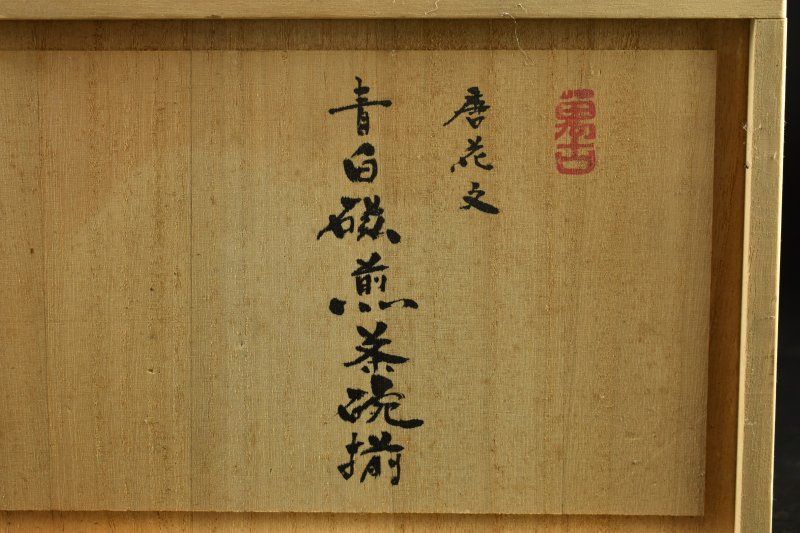 萬古
唐花文
青白磁煎茶碗揃